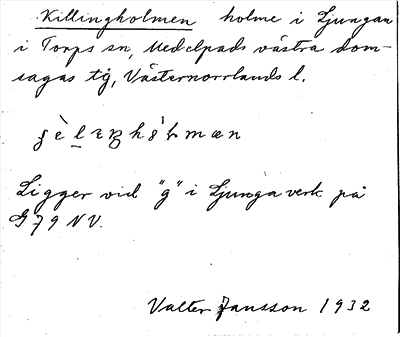 Killingholmen holme i Ljungan
i Torps sn, Medelpads västra dom-
sagas tg, Västernorrlands l.
Ligger vid "g" i Ljunga verk på
G 79 NV.
Valter Jansson 1932